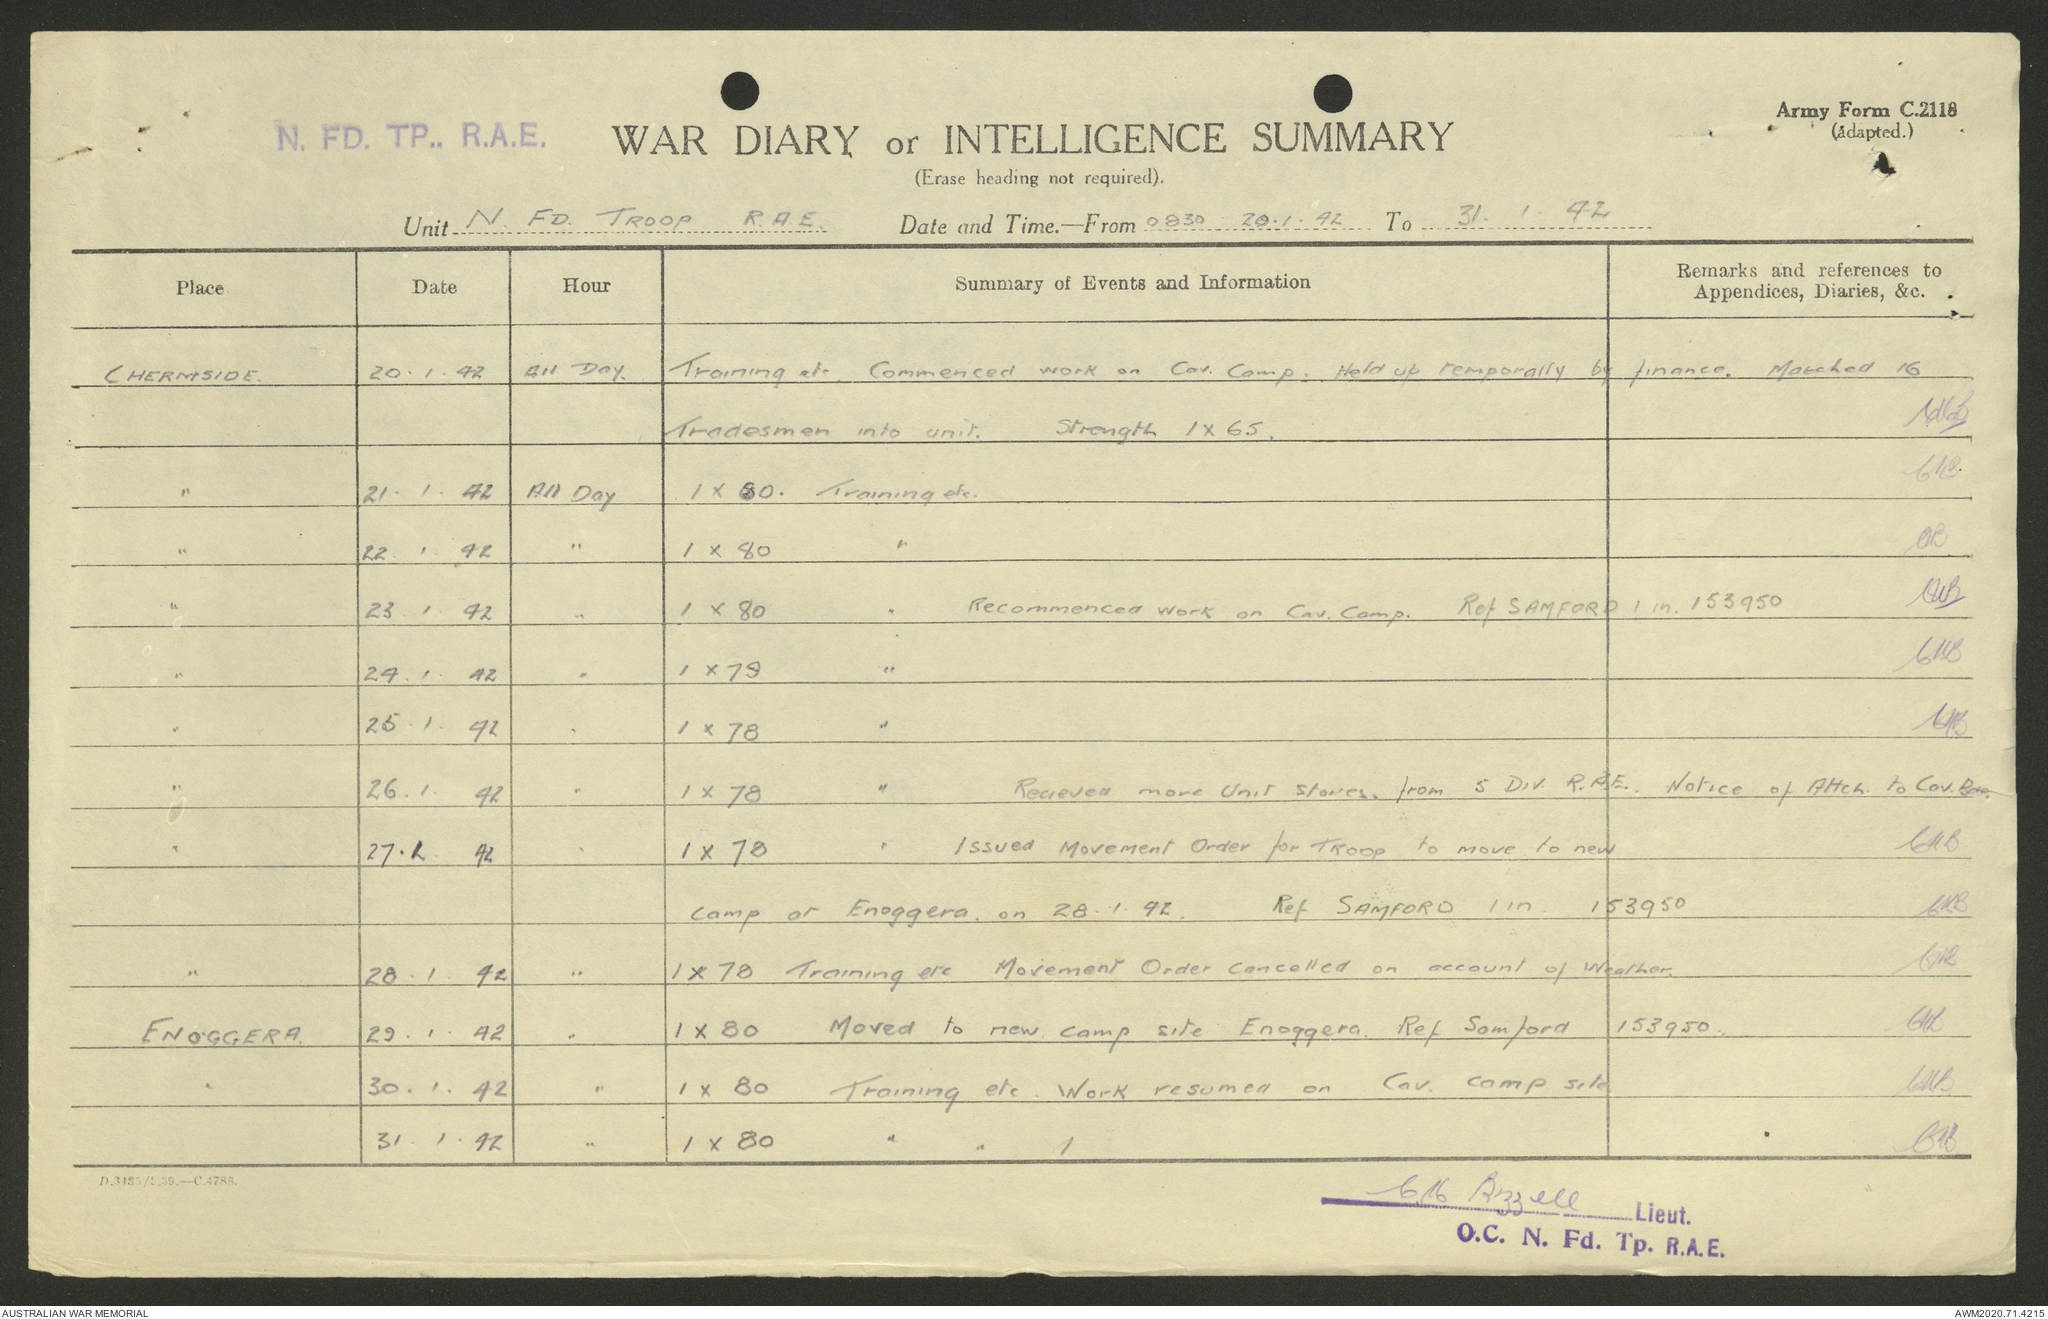 Army Form C.2118
(adapted.)
N. FD. TP.. R.A.E.
WAR DIARY or INTELLIGENCE SUMMARY
(Erase heading not required).
Unit N. FD. TROOP R.A.E. Date and Time.—From 0830 20.1.42 To 31.1.42
Place Date Hour Summary of Events and Information Remarks and references to
Appendices, Diaries, &c.
CHERMSIDE. 20.1.42 All Day. Training etc. Commenced work on Cav. Camp. Held up temporally by finance. Marched 16
Tradesmen into unit. Strength 1 x 65.
" 21.1.42 All Day 1 x 80. Training etc.
" 22.1.42 " 1 x 80 "
" 23.1.42 " 1 x 80 " Recommenced work on Cav. Camp. Ref SAMFORD 1 in. 153950
" 24.1.42 " 1 x 79 "
" 25.1.42 " 1 x 78 "
" 26.1.42 " 1 x 78 " Recieved more Unit stores. from 5 Div. R.A.E. Notice of Attch. to Cav. Bde.
" 27.1.42 " 1 x 78 " Issued Movement Order for TROOP to move to new
camp at Enoggera. on 28.1.42. Ref SAMFORD 1 in. 153950
" 28.1.42 " 1 x 78 Training etc Movement Order cancelled on account of Weather.
ENOGGERA. 29.1.42 " 1 x 80 Moved to new camp site Enoggera. Ref Samford 153950.
" 30.1.42 " 1 x 80 Training etc. Work resumed on Cav. camp site.
31.1.42 " 1 x 80 " "
D.3455/5.39.—C.4788.
Bizzell Lieut.
O.C. N. Fd. Tp. R.A.E.
AUSTRALIAN WAR MEMORIAL
AWM2020.71.4215